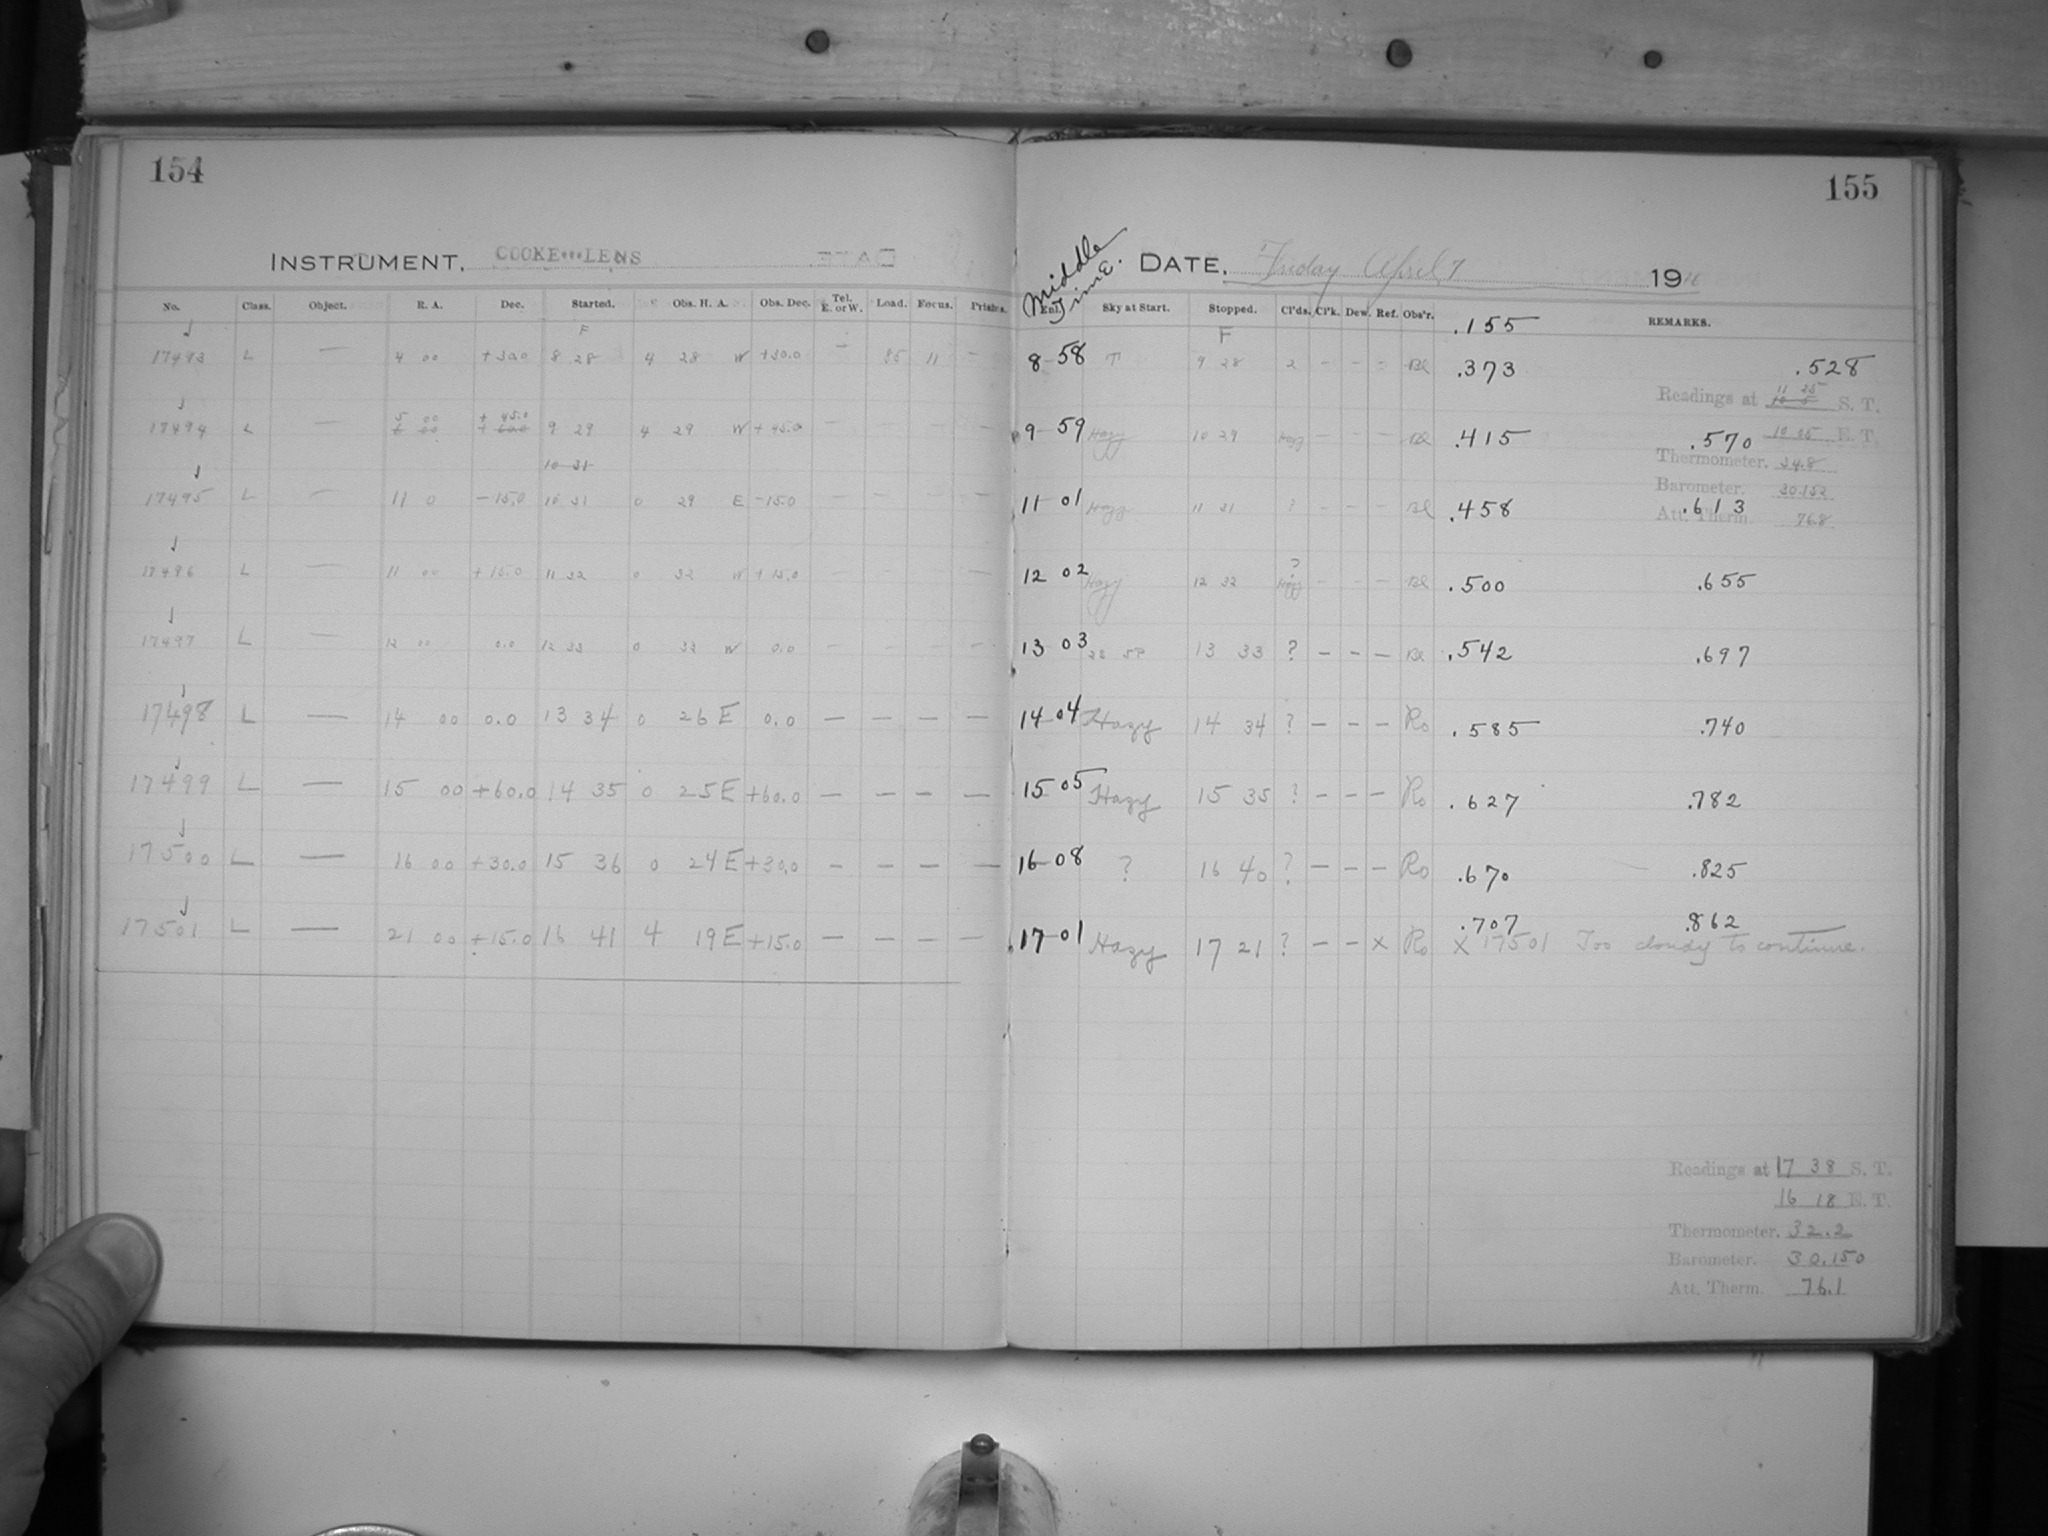 154
155
INSTRUMENT, COOKE LENS
Middle Time.
DATE, Friday April 7 19
No. Class. Object. R. A. Dec. Started. Obs. H. A. Obs. Dec. Tel. E. or W. Load. Focus. Prisms. Sky at Start. Stopped. Cl'ds. Cl'k. Dew. Ref. Obs'r. .155 REMARKS.
F F
17493 L — 4 00 +30.0 8 28 4 28 W +30.0 — 11 — 8-58 9 28 2 — — — Bl .373 .528
Readings at 11 25 S. T.
5 00 + 45.0
17494 L — 9 29 4 29 W + 45.0 — — — — 9-59 Hazy 10 29 Hazy — — — Bl .415 .570 E. T.
10 31
Thermometer. 34.8
Barometer. 30.152
17495 L — 11 0 -15.0 10 31 0 29 E -15.0 — — — — 11-01 Hazy 11 31 ? — — — Bl .458 .613
Att. Therm. 76.8
17496 L — 11 00 +15.0 11 32 0 32 W +15.0 — — — — 12 02 Hazy 12 32 ? Hazy — — — Bl .500 .655
17497 L — 12 00 0.0 12 33 0 32 W 0.0 — — — — 13 03 13 33 ? — — — Bl .542 .697
17498 L — 14 00 0.0 13 34 0 26 E 0.0 — — — — 14-04 Hazy 14 34 ? — — — Ro .585 .740
17499 L — 15 00 +60.0 14 35 0 25 E +60.0 — — — — 15 05 Hazy 15 35 ? — — — Ro .627 .782
17500 L — 16 00 +30.0 15 36 0 24 E +30.0 — — — — 16-08 ? 16 40 ? — — — Ro .670 .825
.707 .862
17501 L — 21 00 +15.0 16 41 4 19 E +15.0 — — — — 17-01 Hazy 17 21 ? — — x Ro X 17501 Too cloudy to continue.
Readings at 17 38 S. T.
16 18 E. T.
Thermometer. 32.2
Barometer. 30.150
Att. Therm. 76.1